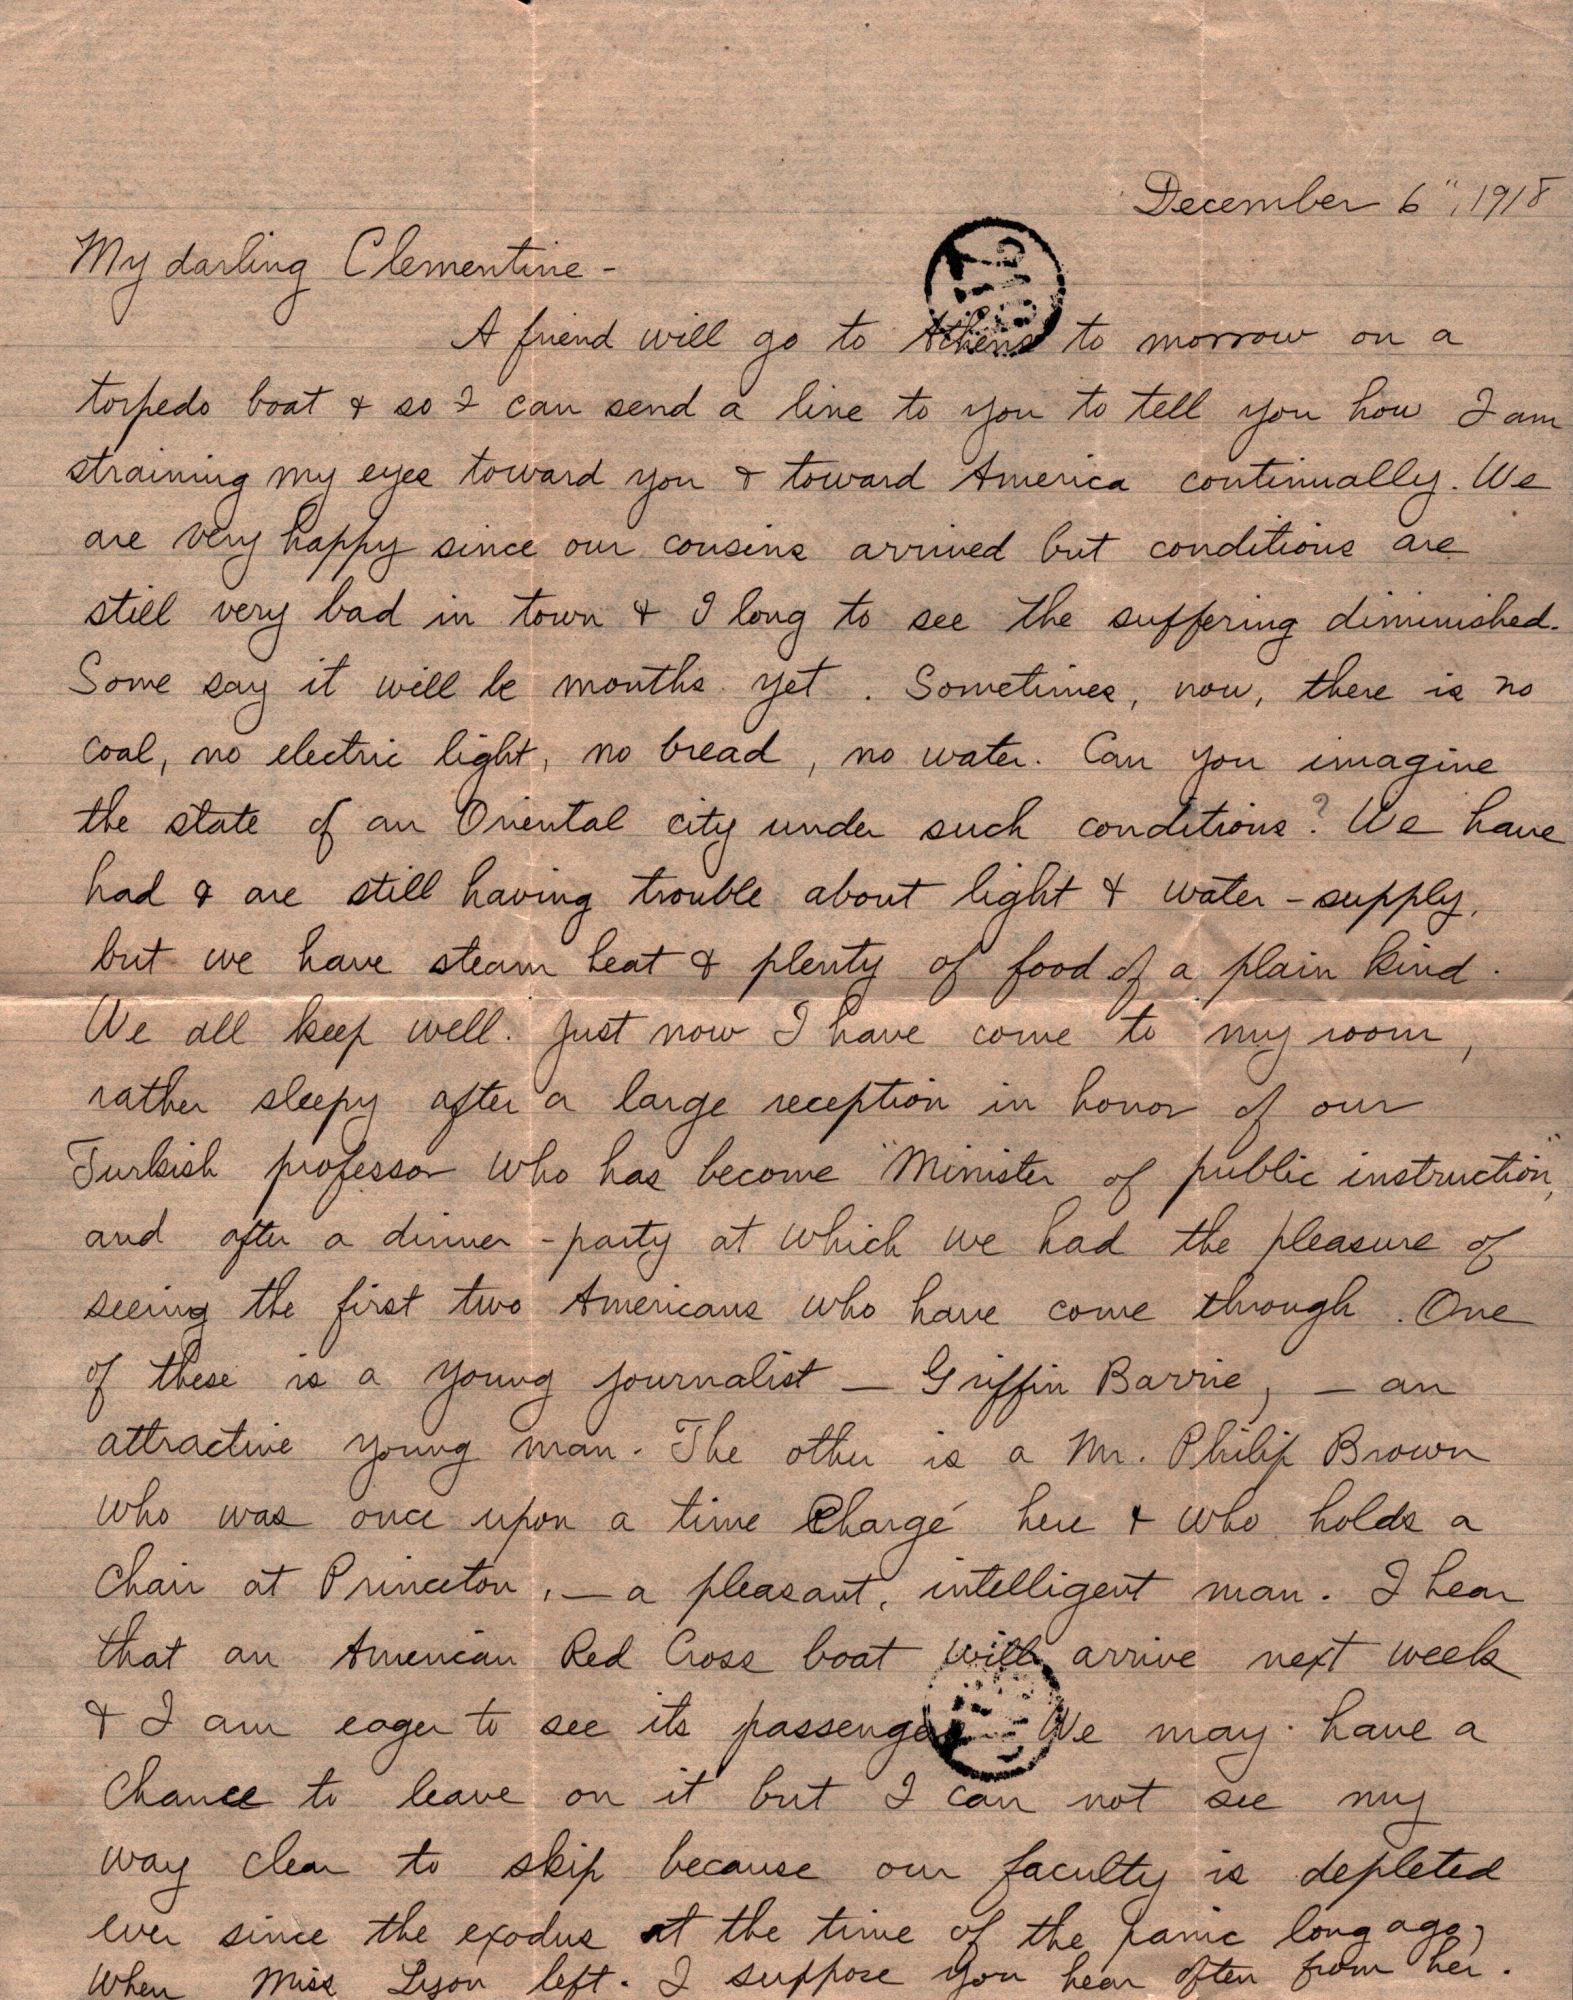 December 6", 1918
My darling Clementine -
A friend will go to Athens to morrow on a
torpedo boat & so I can send a line to you to tell you how I am
straining my eyes toward you & toward America continually. We
are very happy since our cousins arrived but conditions are
still very bad in town & I long to see the suffering diminished.
Some say it will be months yet. Sometimes, now, there is no
coal, no electric light, no bread, no water. Can you imagine
the state of an Oriental city under such conditions? We have
had & are still having trouble about light & water-supply,
but we have steam heat & plenty of food of a plain kind.
We all keep well. Just now I have come to my room,
rather sleepy after a large reception in honor of our
Turkish professor who has become "Minister of public instruction",
and after a dinner-party at which we had the pleasure of
seeing the first two Americans who have come through. One
of these is a young journalist — Griffin Barrie, — an
attractive young man. The other is a Mr. Philip Brown
who was once upon a time Chargé here & who holds a
chair at Princeton, — a pleasant, intelligent man. I hear
that an American Red Cross boat will arrive next week
& I am eager to see its passengers. We may have a
chance to leave on it but I can not see my
way clear to skip because our faculty is depleted
ever since the exodus at the time of the panic long ago,
when Miss Lyon left. I suppose you hear often from her.